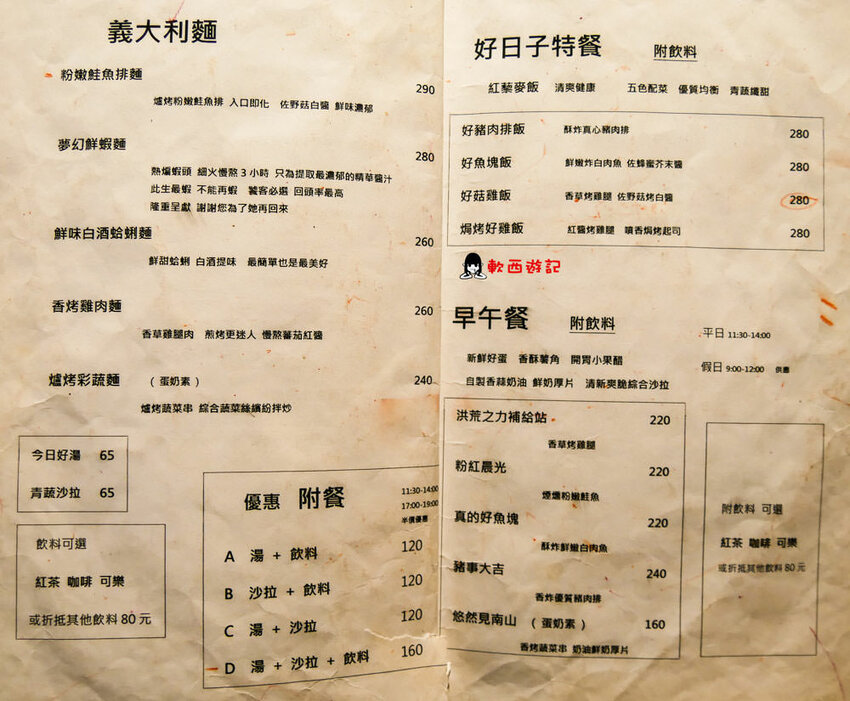 義大利麵
粉嫩鮭魚排麵 290
爐烤粉嫩鮭魚排 入口即化 佐野菇白醬 鮮味濃郁
夢幻鮮蝦麵 280
熱煸蝦頭 細火慢熬3小時 只為提取最濃郁的精華醬汁
此生最蝦 不能再蝦 饕客必選 回頭率最高
隆重呈獻 謝謝您為了她再回來
鮮味白酒蛤蜊麵 260
鮮甜蛤蜊 白酒提味 最簡單也是最美好
香烤雞肉麵 260
香草雞腿肉 煎烤更迷人 慢熬蕃茄紅醬
爐烤彩蔬麵 (蛋奶素) 240
爐烤蔬菜串 綜合蔬菜絲繽紛拌炒
今日好湯 65
青蔬沙拉 65
飲料可選
紅茶 咖啡 可樂
或折抵其他飲料80元
優惠 附餐
11:30-14:00
17:00-19:00
半價優惠
A 湯 + 飲料 120
B 沙拉 + 飲料 120
C 湯 + 沙拉 120
D 湯 + 沙拉 + 飲料 160
好日子特餐 附飲料
紅藜麥飯 清爽健康 五色配菜 優質均衡 青蔬纖甜
好豬肉排飯 酥炸真心豬肉排 280
好魚塊飯 鮮嫩炸白肉魚 佐蜂蜜芥末醬 280
好菇雞飯 香草烤雞腿 佐野菇烤白醬 280
焗烤好雞飯 紅醬烤雞腿 噴香焗烤起司 280
軟西遊記
早午餐 附飲料
平日 11:30-14:00
假日 9:00-12:00 供應
新鮮好蛋 香酥薯角 開胃小果醋
自製香蒜奶油 鮮奶厚片 清新爽脆綜合沙拉
洪荒之力補給站 220
香草烤雞腿
粉紅晨光 220
煙燻粉嫩鮭魚
真的好魚塊 220
酥炸鮮嫩白肉魚
豬事大吉 240
香炸優質豬肉排
悠然見南山 (蛋奶素) 160
香烤蔬菜串 奶油鮮奶厚片
附飲料 可選
紅茶 咖啡 可樂
或折抵其他飲料80元